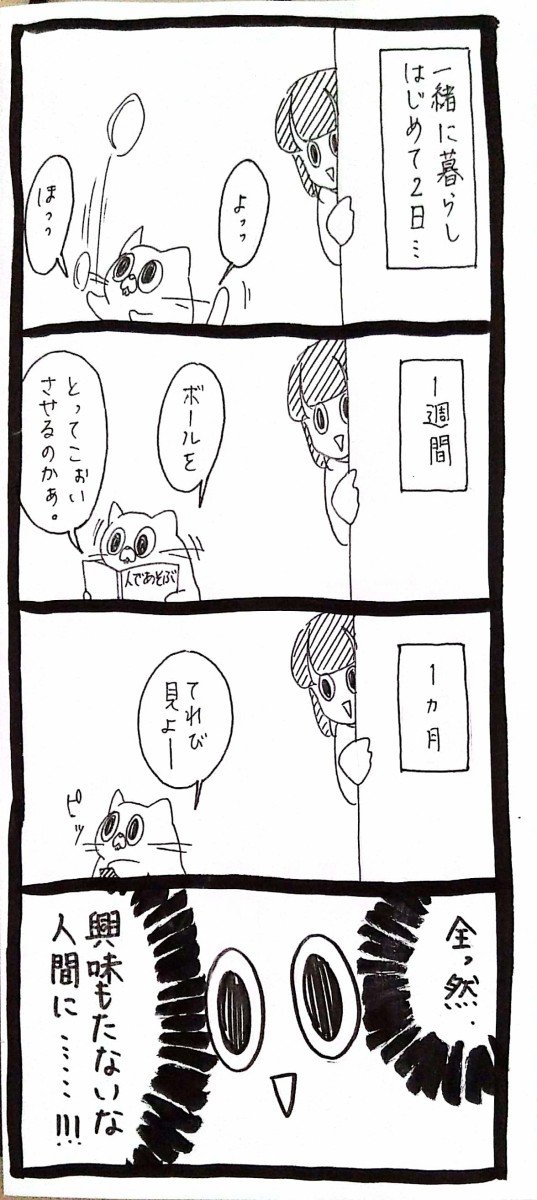 一緒に暮らし
はじめて2日…
よっっ
ほっっ
1週間
ボールを
とってこぉい
させるのかぁ。
人であそぶ
1ヵ月
てれび
見よー
ピッ
全っ然.
興味もたないな
人間に……!!!